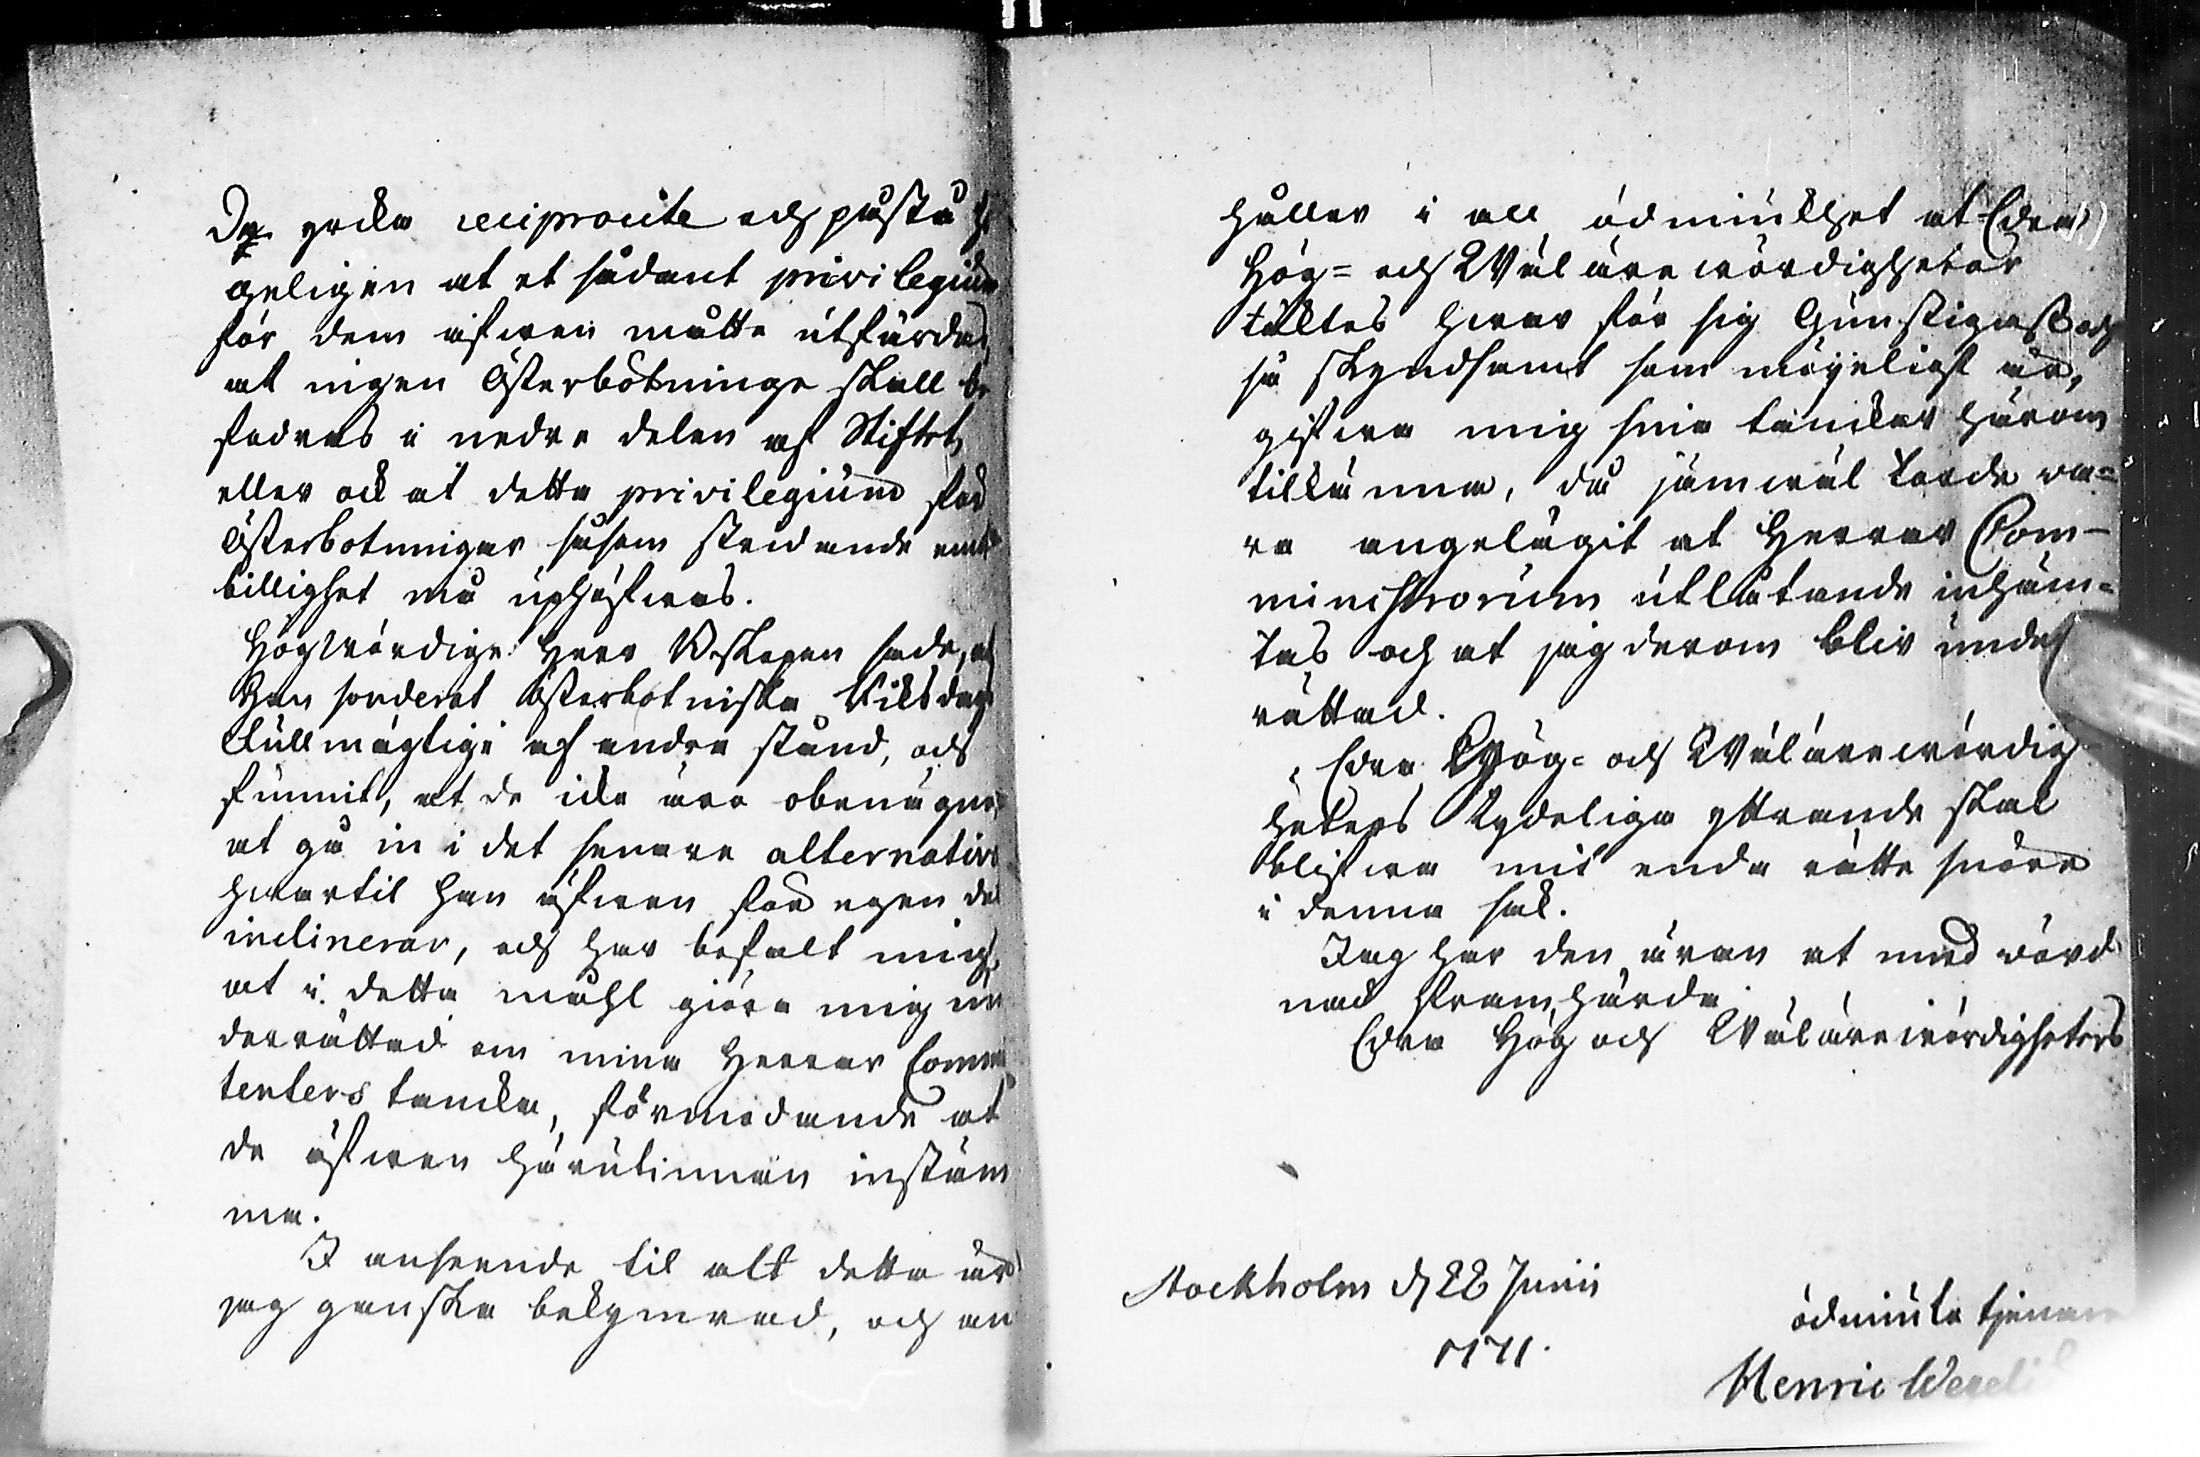 De yrcka reciprocite och påstå h
geligen at et sådant privilegium
för dem äfwen måtte utfärdas,
at ingen Österbotninge skall be
fodras i nedre delen af Stiftet,
eller ock at detta privilegium för
Österbotningar såsom stridande emot
billighet må uphäfwas.
Högwördige Herr Biskopen sade, at
Han sonderat Österbotniska Riksdags
Fullmägtige af andra stånd, och
funnit, at de icke äro obenägne
at gå in i det senare alternativet
hwartil han äfwen för egen del
inclinerar, och har befalt mig,
at i detta mahl giöra mig un
derrättad om mina Herrar Commi
tenters tancka, förmodande at
de äfwen härutinnan instäm
ma.
I anseende til alt detta är
jag ganska bekymrad, och an
håller i all ödmiukhet at Edra
Hög= och Wäl ärewördigheter
täktes hwar för sig Gunstigast och
så skyndsamt som möjeligt är,
gifwa mig sina tanckar härom
tillkänna, då jämwäl torde wa=
ra angelägit at Herrar Com-
ministrorum utlåtande inhäm=
tas och at jag derom bliv under
rättad.
Edra Hög= och Wäl ärewördig
heters Tydeliga yttrande skal
blifwa mit enda rätte snöre
i denna sak.
Jag har den äran at med wörd
nad framhärda
Edra Hög och Wäl ärewördigheters
Stockholm d 22 Junii
1771.
ödmiuke tjenare
Henric